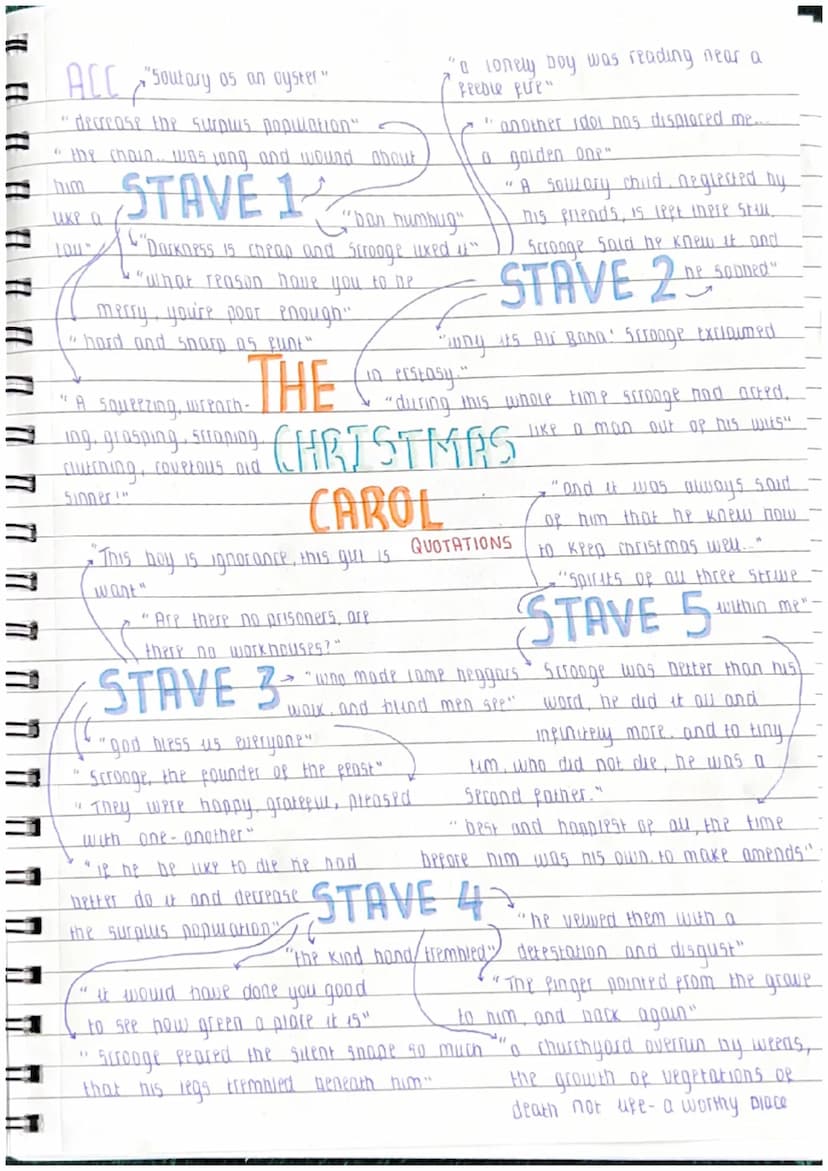 ACC
"Soutary as an oyster"
"decrease the surplus population"
"the chain.. was long and wound about
him
like a
tail"
STAVE 1
"bah humbug"
"Darkness is cheap and Scrooge liked it"
"what reason have you to be
merry, you're poor enough"
"hard and sharp as flint"
"A squeezing, wrench-
ing, grasping, scraping,
clutching, covetous old
sinner!"
"a lonely boy was reading near a
feeble fire"
"another idol has displaced me...
a golden one"
"A solitary child, neglected by
his friends, is left there still.
Scrooge said he knew it and
he sobbed"
STAVE 2
"why its Ali Baba! Scrooge exclaimed
in ecstasy."
"during this whole time scrooge had acted,
like a man out of his wits"
THE
CHRISTMAS
CAROL
QUOTATIONS
"and it was always said
of him that he knew how
to keep christmas well.."
"spirits of all three strive
within me"
STAVE 5
Scrooge was better than his
word, he did it all and
infinitely more. and to tiny
tim, who did not die, he was a
second father."
"best and happiest of all, the time
before him was his own, to make amends"
"This boy is ignorance, this girl is
want"
"Are there no prisoners, are
there no workhouses?"
STAVE 3
"who made lame beggars
walk, and blind men see"
"god bless us everyone"
"Scrooge, the founder of the feast"
"They were happy, grateful, pleased
with one-another"
"if he be like to die he had
better do it and decrease
the surplus population"
STAVE 4
"the kind hand trembled"
"it would have done you good
to see how green a place it is"
"Scrooge feared the silent shape so much
that his legs trembled beneath him"
"he veiwed them with a
detestation and disgust"
"The finger pointed from the grave
to him, and back again"
"a churchyard overrun by weeds,
the growth of vegetations of
death not life- a worthy place